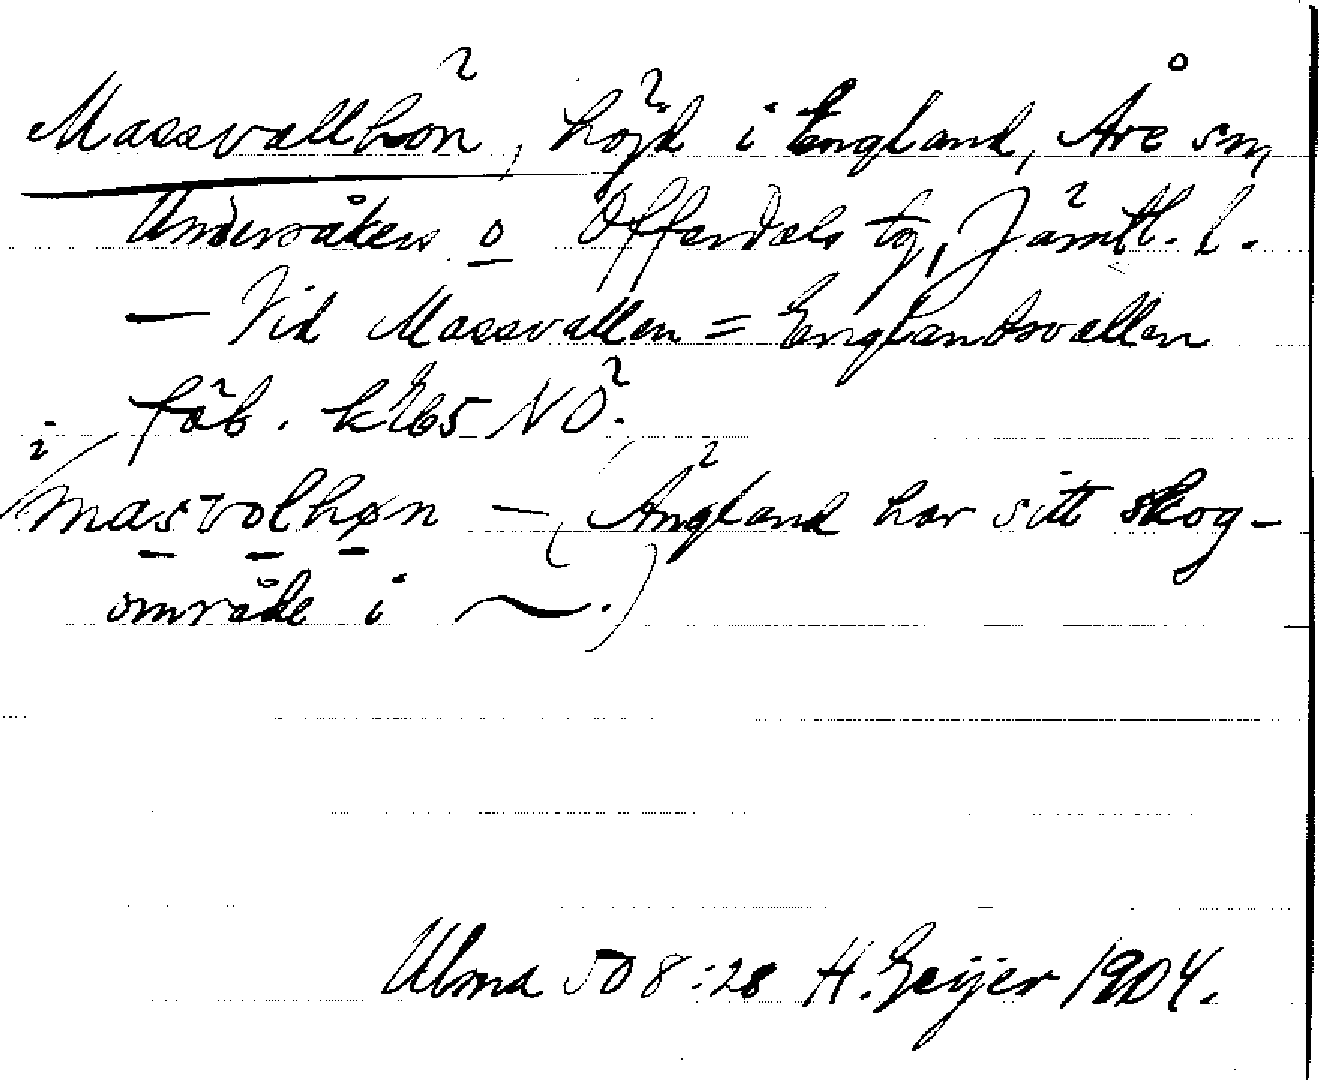 Massvallhön, höjd i England, Åre sn,
Undersåkers o Offerdals tg, Jämtl. l.
— Vid Massvallen = Englandsvallen
fäb. NÖ.
i masvolhøn — (Ängland har sitt skog-
område i ~.)
Ulma 508:28 H. Geijer 1904.